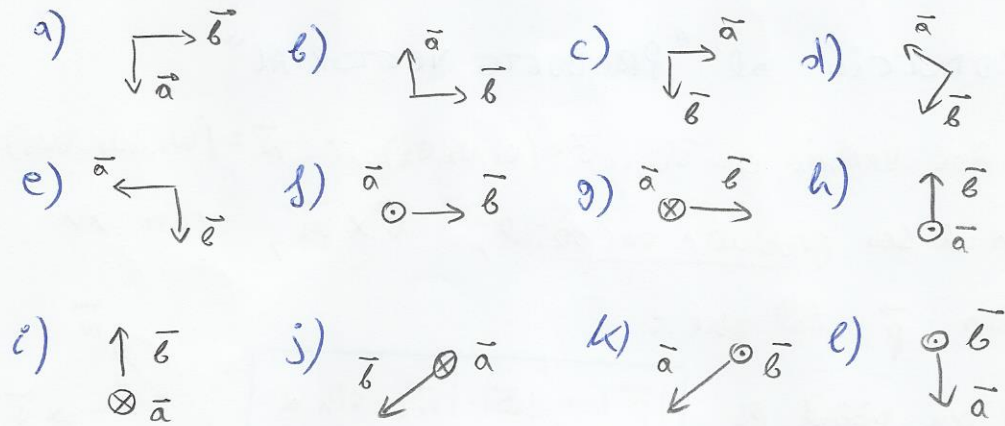 a) b⃗ a⃗ b) a⃗ b⃗ c) a̅ b̅ d) a̅ b⃗
e) a̅ b⃗ f) a̅ b̅ g) a̅ b̅ h) b̅ a̅
i) b̅ a̅ j) b̅ a̅ k) a̅ b̅ l) b̅ a̅